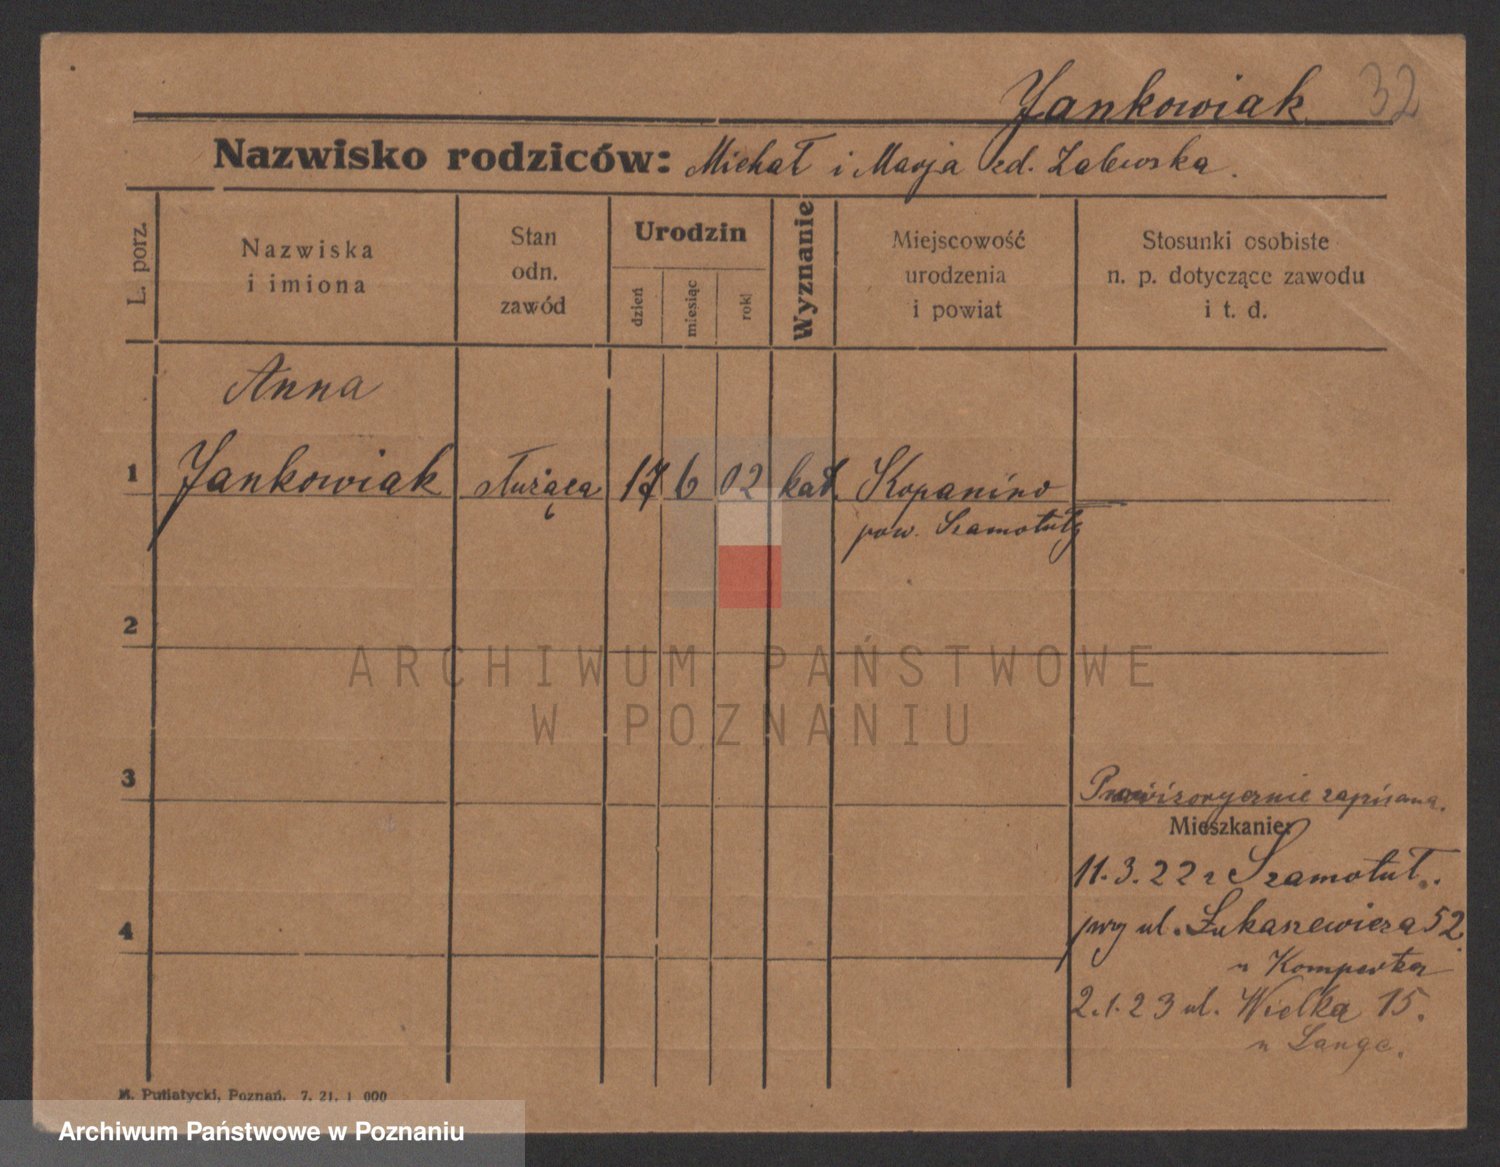 Jankowiak 32
Nazwisko rodziców: Michał i Marja zd. Zalewska.
L. porz.
Nazwiska
i imiona
Stan
odn.
zawód
Urodzin
dzień
miesiąc
rok
Wyznanie
Miejscowość
urodzenia
i powiat
Stosunki osobiste
n. p. dotyczące zawodu
i t. d.
Anna
1 Jankowiak służąca 17 6 02 kat. Kopanino
pow. Szamotuły
2
ARCHIWUM PAŃSTWOWE
W POZNANIU
3
Prowizorycznie zapisana.
Mieszkanie:
11.3.22 z Szamotuł.
przy ul. Łukaszewicza 52.
4
u
2.1.23 ul. Wielka 15.
u Lange.
M. Putiatycki, Poznań. 7. 21. 1 000
Archiwum Państwowe w Poznaniu